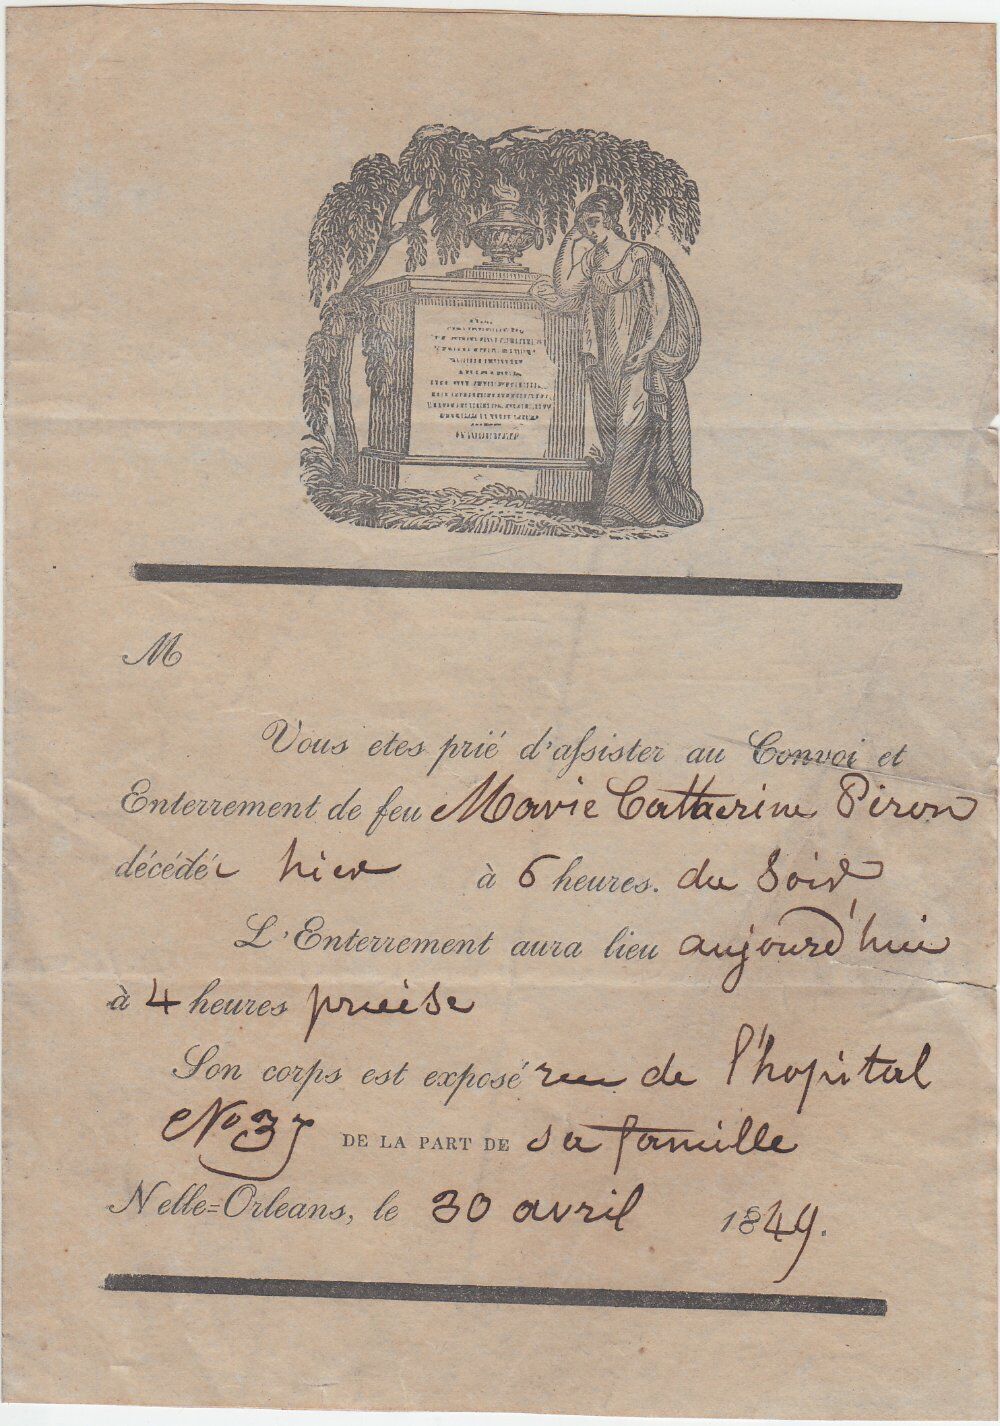 M
Vous etes prié d'assister au Convoi et
Enterrement de feu Marie Catherine Piron
décédée hier à 6 heures. du Soir
L'Enterrement aura lieu aujourd'hui
à 4 heures précise
Son corps est exposé rue de l'hopital
No DE LA PART DE sa famille
Nelle=Orleans, le 30 avril 1849.